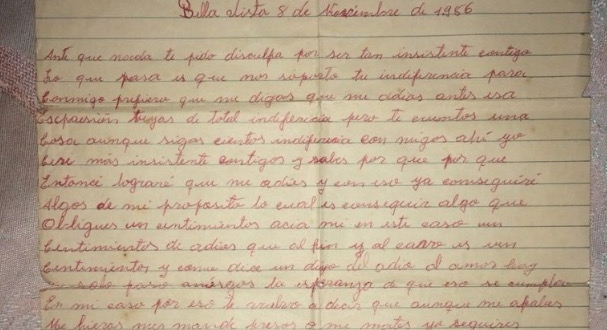 Billa vista 8 de Noviembre de 1986
Ante que nada te pido disculpa por ser tan insistente contigo
Lo que pasa es que nos soporto tu indiferencia para
Conmigo prefiero que me digas que me odias antes esa
de total indiferencia pero te cuentos una
Cosa aunque sigas cientos indiferencia con migos ahí yo
Seré más insistente contigos y sabes por que por que
Entonce lograré que me odies y con eso ya conseguiré
Algos de mi proposito lo cual es conseguir algo que
Obligues un sentimientos acia mi en este caso un
Sentimientos de odios que al fin y al cabro es un
Sentimientos y como dice un dijo del odio al amor hay
solo pasó amargos la esperanza de que eso se cumpla
En mi caso por eso te vuelvo a decir que aunque me apalies
Me fueras mes presos o me mates yo seguires